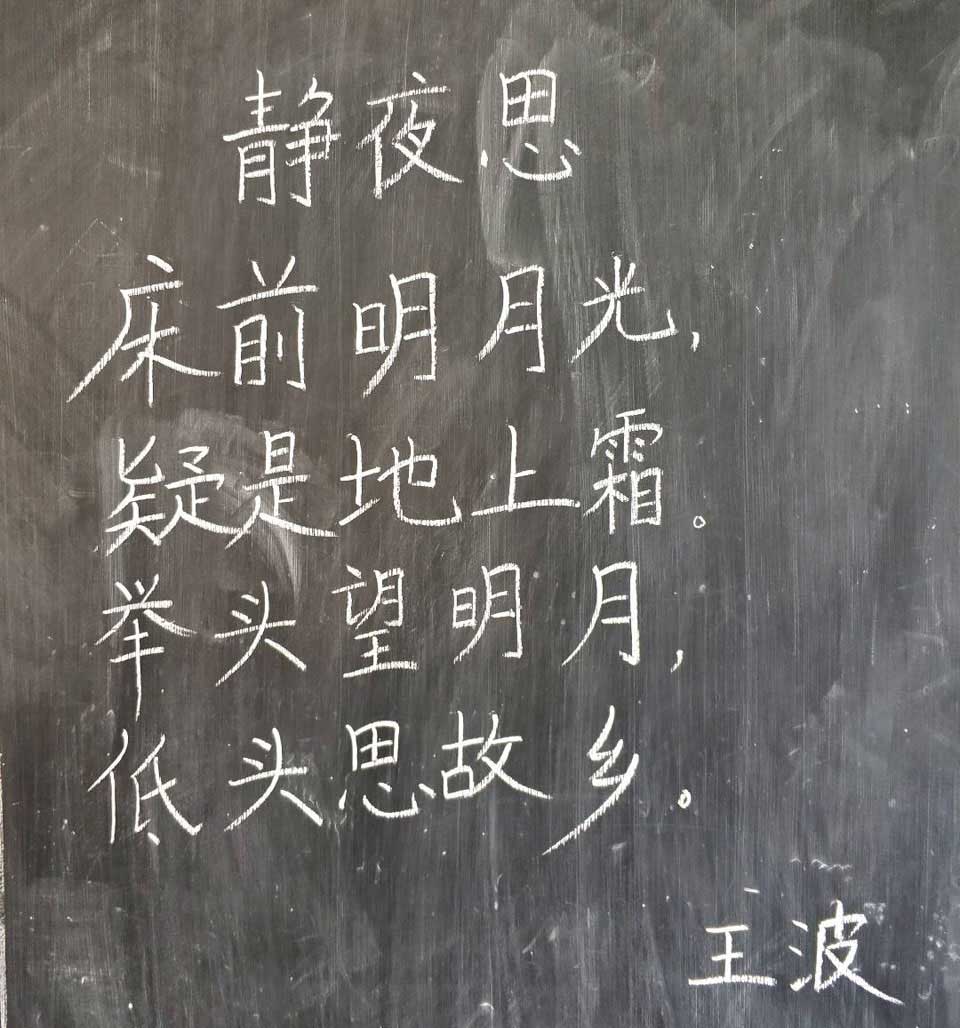 静夜思
床前明月光,
疑是地上霜。
举头望明月,
低头思故乡。
王波